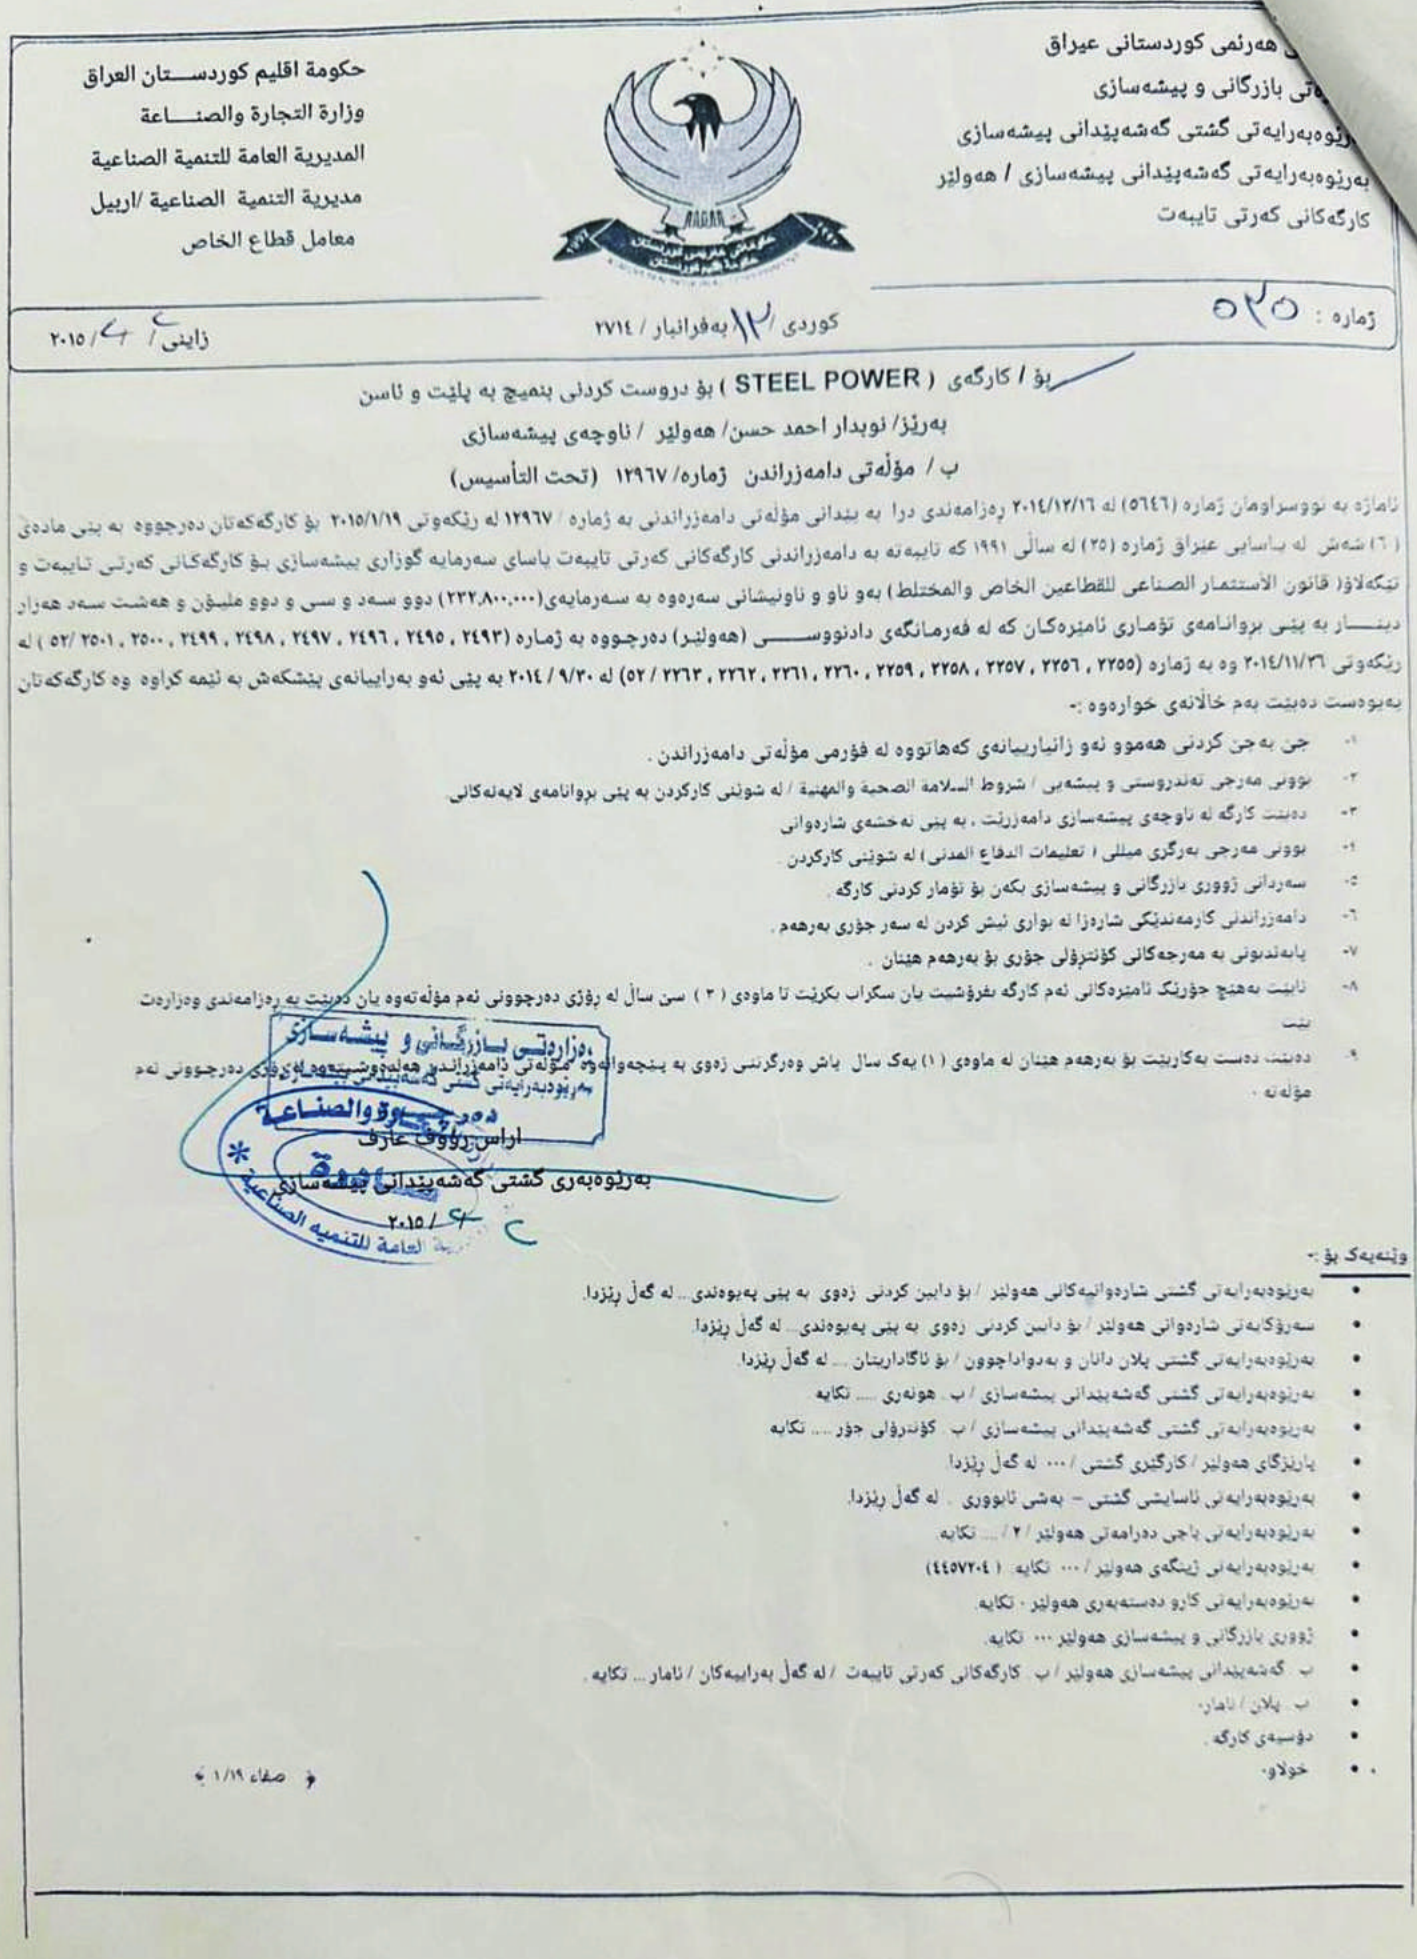 هەرێمی کوردستانی عیراق
بازرگانی و پیشەسازی
بەرێوەبەرایەتی گشتی گەشەپێدانی پیشەسازی
بەرێوەبەرایەتی گەشەپێدانی پیشەسازی / هەولێر
کارگەکانی کەرتی تایبەت
حکومة اقلیم کوردســـتان العراق
وزارة التجارة والصنـــاعة
المدیریة العامة للتنمیة الصناعیة
مدیریة التنمیة الصناعیة /اربیل
معامل قطاع الخاص
ژمارە : ٥٢٥
کوردی /١٣/بەفرانبار / ٢٧١٤
زاینی ٢ / ٢ /٢٠١٥
بۆ / کارگەی ( STEEL POWER ) بۆ دروست کردنی بنمیچ بە پلێت و ئاسن
بەرێز/ نوبدار احمد حسن/ هەولێر / ناوچەی پیشەسازی
ب / مۆلەتی دامەزراندن ژمارە/ ١٢٩٦٧ (تحت التأسیس)
ئاماژە بە نووسراومان ژمارە (٥٦٤٦) لە ٢٠١٤/١٢/١٦ رەزامەندی درا بە پێدانی مۆلەتی دامەزراندنی بە ژمارە / ١٢٩٦٧ لە رێکەوتی ٢٠١٥/١/١٩ بۆ کارگەکەتان دەرچووە بە پێی مادەی
(٦) شەش لە یاسایی عێراق ژمارە (٢٥) لە سالی ١٩٩١ کە تایبەتە بە دامەزراندنی کارگەکانی کەرتی تایبەت یاسای سەرمایە گوزاری پیشەسازی بۆ کارگەکانی کەرتی تایبەت و
تێکەلاو( قانون الأستثمار الصناعی للقطاعین الخاص والمختلط) بەو ناو و ناونیشانی سەرەوە بە سەرمایەی(٢٣٢,٨٠٠,٠٠٠) دوو سەد و سی و دوو ملیۆن و هەشت سەد هەزار
دینـــار بە پێی بروانامەی تۆماری ئامێرەکان کە لە فەرمانگەی دادنووســـی (هەولێر) دەرچووە بە ژمارە (٢٤٩٣ ، ٢٤٩٥ ، ٢٤٩٦ ، ٢٤٩٧ ، ٢٤٩٨ ، ٢٤٩٩ ، ٢٥٠٠ ، ٢٥٠١ /٥٢ ) لە
رێکەوتی ٢٠١٤/١١/٢٦ وە بە ژمارە (٢٢٥٥ ، ٢٢٥٦ ، ٢٢٥٧ ، ٢٢٥٨ ، ٢٢٥٩ ، ٢٢٦٠ ، ٢٢٦١ ، ٢٢٦٢ ، ٢٢٦٣ / ٥٢) لە ٢٠١٤/ ٩/٣٠ بە پێی ئەو بەراییانەی پێشکەش بە ئێمە کراوە وە کارگەکەتان
پەیوەست دەبێت بەم خالانەی خوارەوە :-
١- جێ بەجێ کردنی هەموو ئەو زانیارییانەی کەهاتووە لە فۆرمی مۆلەتی دامەزراندن .
٢- بوونی مەرجی تەندروستی و پیشەیی / شروط السلامة الصحیة والمهنیة / لە شوێنی کارکردن بە پێی بروانامەی لایەنەکانی.
٣- دەبێت کارگە لە ناوچەی پیشەسازی دامەزرێت ، بە پێی نەخشەی شارەوانی
٤- بوونی مەرجی بەرگری میللی ( تعلیمات الدفاع المدنی) لە شوێنی کارکردن .
٥- سەردانی ژووری بازرگانی و پیشەسازی بکەن بۆ تۆمار کردنی کارگە .
٦- دامەزراندنی کارمەندێکی شارەزا لە بواری ئیش کردن لە سەر جۆری بەرهەم .
٧- پابەندبونی بە مەرجەکانی کۆنترۆلی جۆری بۆ بەرهەم هێنان .
٨- نابێت بەهێچ جۆرێک ئامێرەکانی ئەم کارگە بفرۆشیت یان سکراب بکرێت تا ماوەی ( ٣ ) سێ سال لە رۆژی دەرچوونی ئەم مۆلەتەوە یان دەبێت بە رەزامەندی وەزارەت
بێت
٩- دەبێت دەست بەکاربێت بۆ بەرهەم هێنان لە ماوەی (١) یەک سال پاش وەرگرتنی زەوی بە پێچەوانەوە مۆلەتی دامەزراندن هەلدەوەشێتەوە لە رۆژی دەرچوونی ئەم
مۆلەتە .
وەزارەتی بازرگانی و پیشەسازی
بەرێوەبەرایەتی گشتی گەشەپێدانی پیشەسازی
دەرچوو
والصناعة
العامة للتنمیة الصناعیة
اراس رؤوف عارف
بەرێوەبەری گشتی گەشەپێدانی پیشەسازی
٢ / ٢ / ٢٠١٥
وێنەیەک بۆ :-
• بەرێوەبەرایەتی گشتی شارەوانیەکانی هەولێر / بۆ دابین کردنی زەوی بە پێی پەیوەندی... لە گەل رێزدا.
• سەرۆکایەتی شارەوانی هەولێر / بۆ دابین کردنی زەوی بە پێی پەیوەندی... لە گەل رێزدا.
• بەرێوەبەرایەتی گشتی پلان دانان و بەدواداچوون / بۆ ئاگاداریتان ... لە گەل رێزدا.
• بەرێوەبەرایەتی گشتی گەشەپێدانی پیشەسازی / ب . هونەری .... تکایە
• بەرێوەبەرایەتی گشتی گەشەپێدانی پیشەسازی / ب . کۆنترۆلی جۆر .... تکایە
• پارێزگای هەولێر / کارگێری گشتی / ... لە گەل رێزدا.
• بەرێوەبەرایەتی ئاسایشی گشتی – بەشی ئابووری . لە گەل رێزدا.
• بەرێوەبەرایەتی باجی دەرامەتی هەولێر / ٢ / ... تکایە.
• بەرێوەبەرایەتی ژینگەی هەولێر / ... تکایە. (٤٤٥٧٢٠٤)
• بەرێوەبەرایەتی کارو دەستەبەری هەولێر . تکایە.
• ژووری بازرگانی و پیشەسازی هەولێر ... تکایە.
• ب . گەشەپێدانی پیشەسازی هەولێر / ب . کارگەکانی کەرتی تایبەت / لە گەل بەراییەکان / ئامار ... تکایە .
• ب . پلان / ئامار.
• دۆسیەی کارگە .
• خولاو.
صفاء ١/١٩